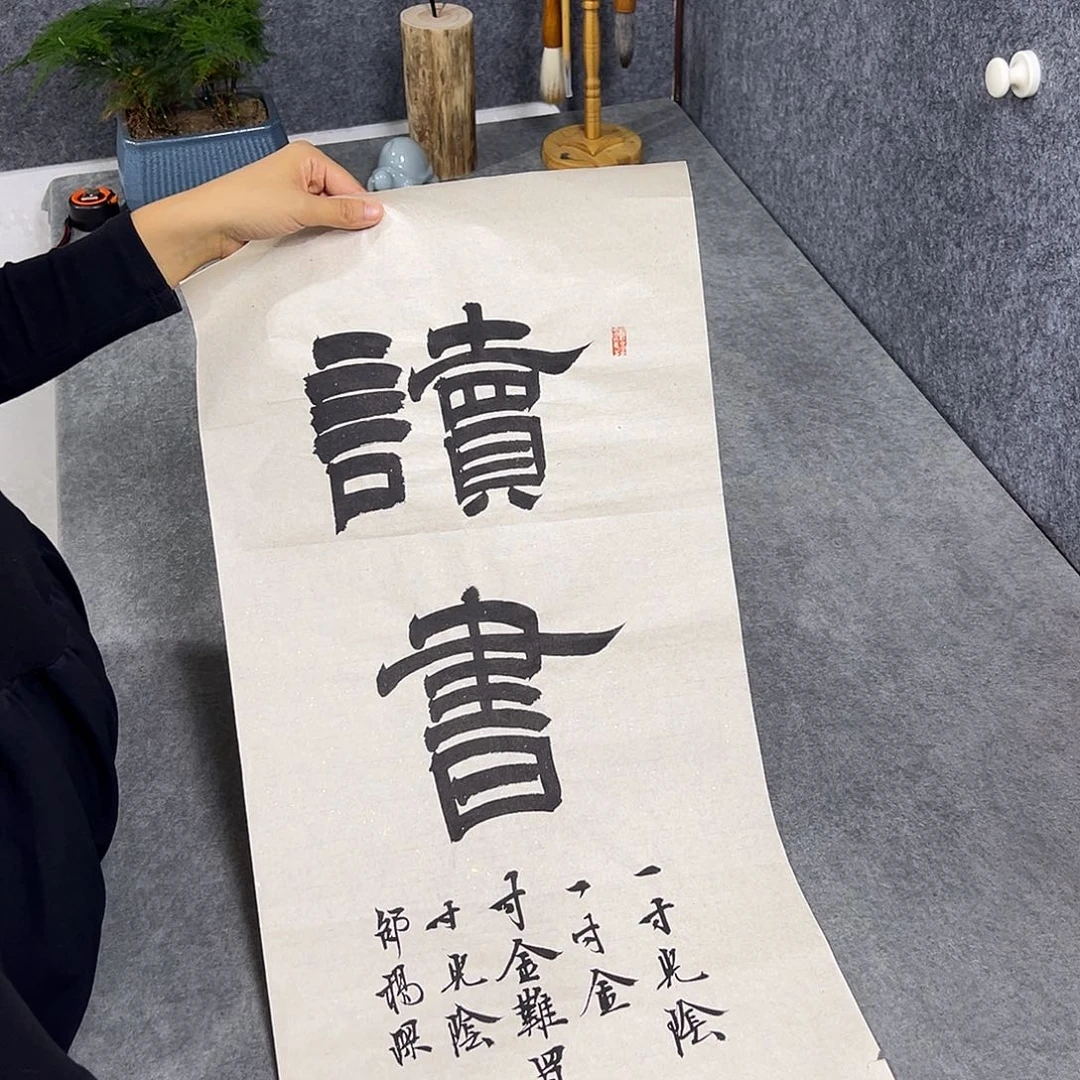 讀
書
一寸光陰
一寸金
寸金難買
寸光陰